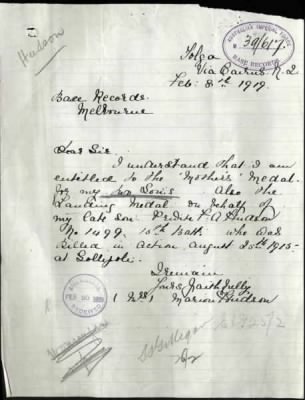 Hudson
AUSTRALIAN IMPERIAL FORCE
39/617
BASE RECORDS
Tolga
Via Cairns N.Q
Feb. 8th 1919.
Base Records.
Melbourne
Dear Sir.
I understand that I am
entitled to the "Mother's" Medal
for my two Sons. Also the
Landing Medal on behalf of
my late son Private A Hudson
No 1499. 15th Batt. who was
Killed in action August 25th 1915
at Gallipoli.
I remain
Yours Faithfully
(Mrs) Marion Hudson
FEB 20 1919